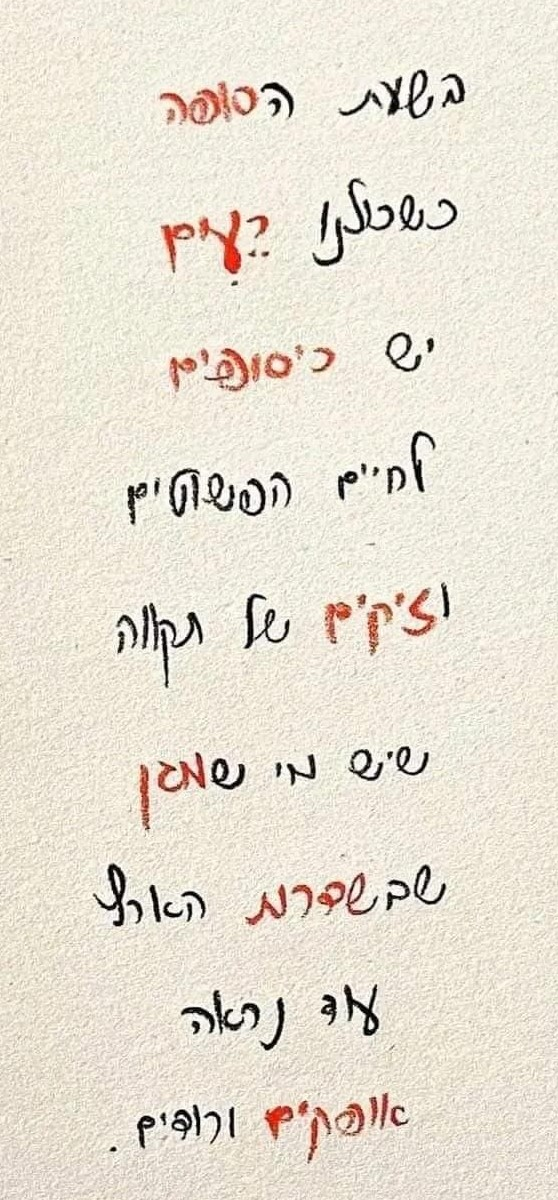 בשעת הסופה
כשכולנו רֵעִים
יש כיסופים
לחיים הפשוטים
וזיקים של תקווה
שיש מי שמגן
שבשדרות הארץ
עוד נראה
אופקים ורודים.